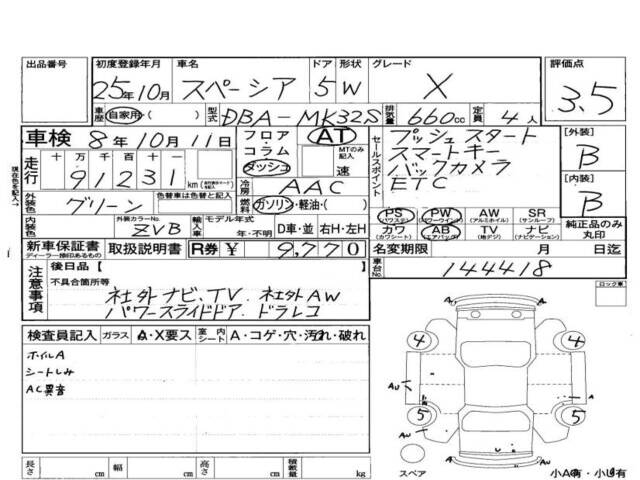 出品番号 初度登録年月 車名 ドア 形状 グレード 評価点
25年10月 スペーシア 5 W X 3.5
車歴 自家用・( ) 型式 DBA-MK32S 排気量 660cc 定員 4人
車検 8年10月11日 フロア AT プッシュスタート [外装]
コラム MTのみ記入 セールスポイント スマートキー B
走行 十万千百十 91231 km ダッシュ 速 バックカメラ [内装]
冷房 AAC ETC B
外装色 グリーン 色替車は色替と記入 燃料 ガソリン・軽油・( ) PS PW AW SR 純正品のみ丸印
(パワステ) (パワーウインド) (アルミホイル) (サンルーフ)
内装色 外装カラーNo. ZVB 輸入車 モデル年式 年・不明 D車・並 右H・左H カワ AB TV ナビ
(カワシート) (エアバック) (地デジ) (ナビゲーション)
新車保証書 取扱説明書 R券 ¥ 9,770 名変期限 月 日迄
ディーラー捺印あるもの
車台No. 144418
現在色を記入→
注意事項 後日品【 】 ロック車
不具合箇所等
社外ナビ、TV 社外AW
パワースライドドア ドラレコ
検査員記入 ガラス A・X要ス 室内シート A・コゲ・穴・汚れ・破れ
ホイルA
シートしみ
AC異音
4 4
AU A
5 5
AU AU A
スペア 小A有・小U有
長さ cm 幅 cm 高さ cm 積載量 kg